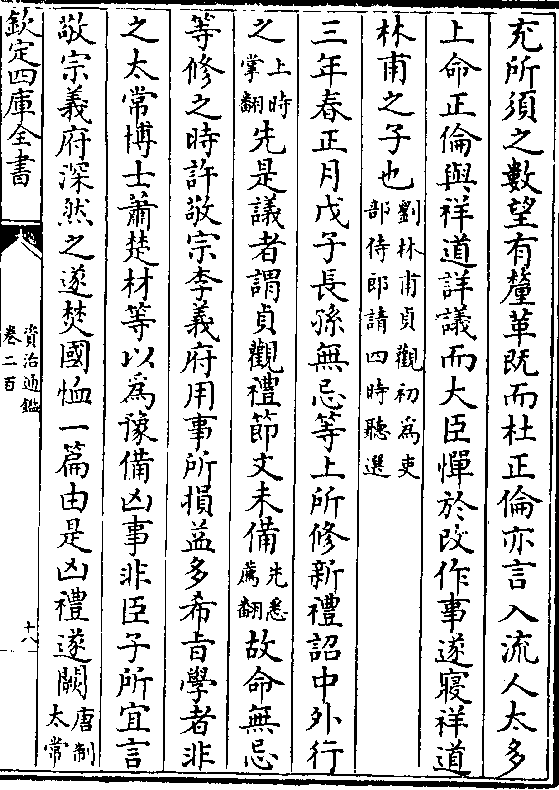 充所須之數望有釐革既而杜正倫亦言入流人太多
上命正倫與祥道詳議而大臣憚於改作事遂寢祥道
林甫之子也劉林甫貞觀初為吏
部侍郎請四時聽選
三年春正月戊子長孫無忌等上所修新禮詔中外行
之上時
掌翻先是議者謂貞觀禮節文未備先悉
薦翻故命無忌
等修之時許敬宗李義府用事所損益多希旨學者非
之太常博士蕭楚材等以為豫備凶事非臣子所宜言
敬宗義府深然之遂焚國恤一篇由是凶禮遂闕唐制
太常
欽定四庫全書
資治通鑑
卷二百
十八